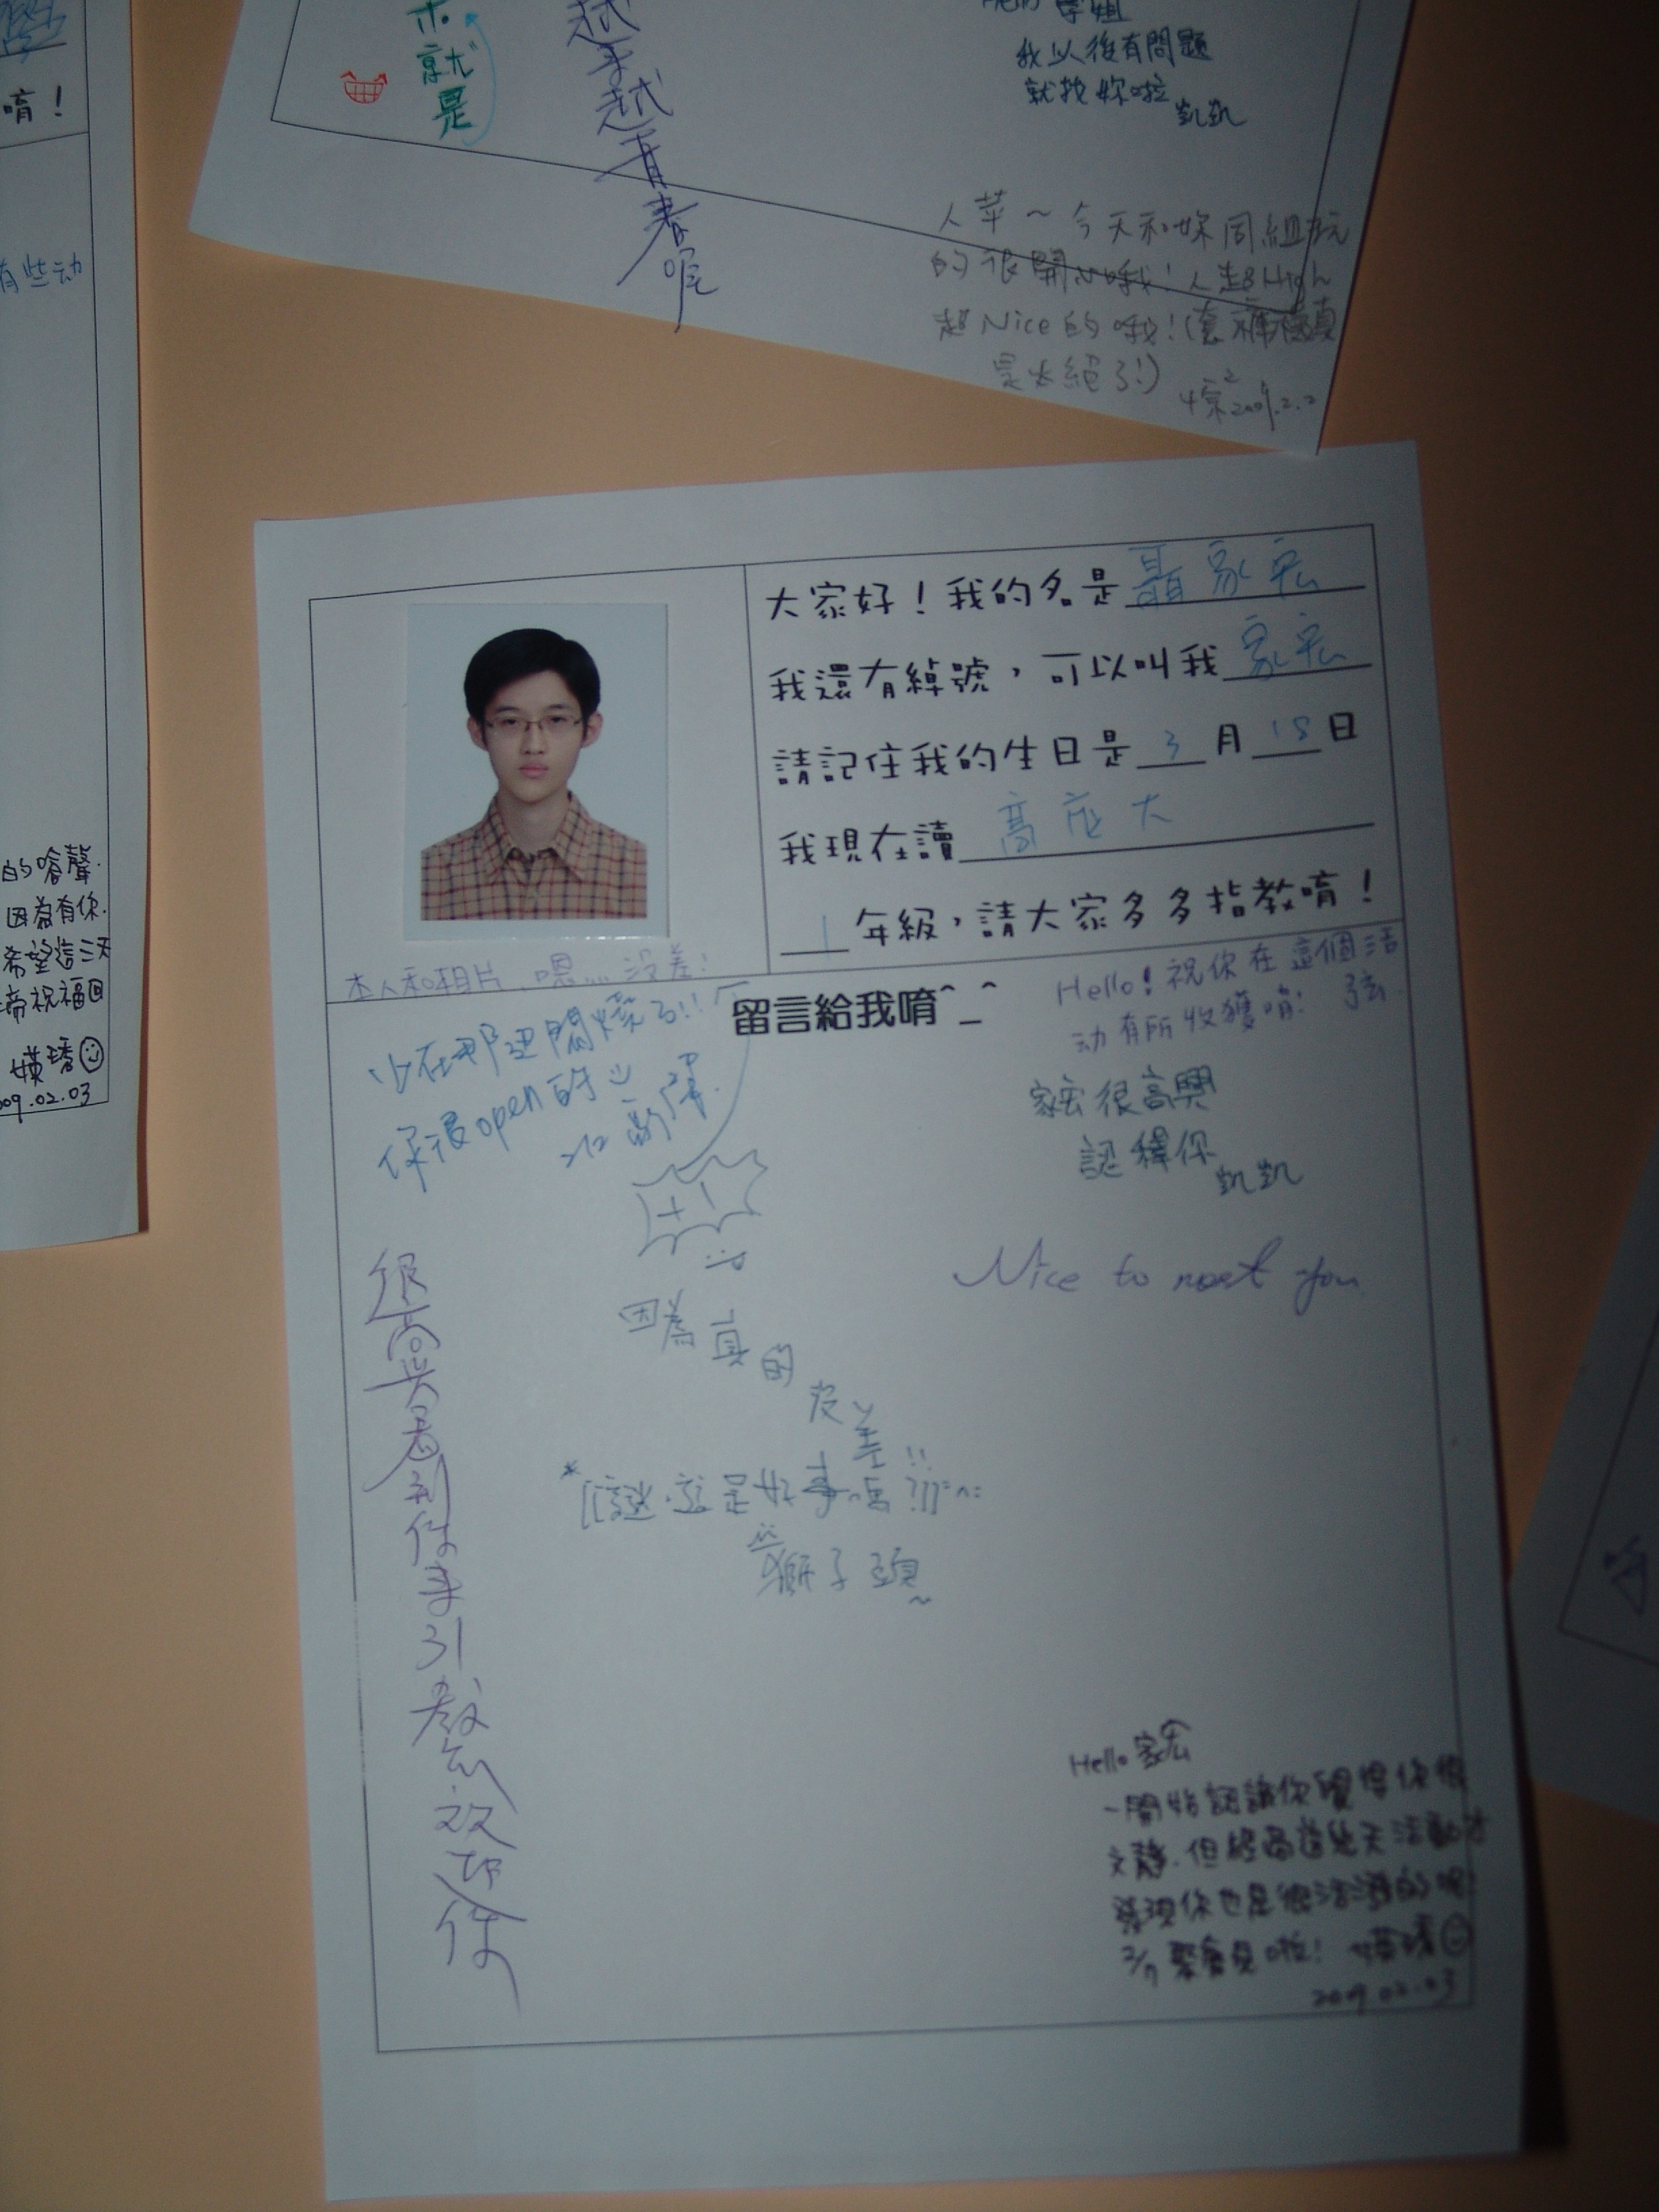 唷！
有些动
的嗆聲.
因為有你.
希望這三天
帝祝福
媖琇
009.02.03
就
是
越
年
越
青
春
呢
學姐
我以後有問題
就找妳啦
凱凱
人苹～今天和妳同組玩
的很開心哦！人超High
超Nice的哦！(套褲襪真
是太絕了！)
2009.2.2
大家好！我的名是聶家宏
我還有綽號，可以叫我家宏
請記住我的生日是3月18日
我現在讀高應大
1年級，請大家多多指教唷！
本人和相片，嗯……沒差！
留言給我唷^_^
Hello！祝你在這個活
动有所收獲唷！弦.
少在那邊悶燒了!!
你很open的
家宏很高興
認識你
凱凱
+1
Nice to meet you
因為真的沒差!!
*[[謎.這是好事嗎???]]
獅子頭~
很高兴看到你来，愿主祝福你
Hello 家宏
一開始認識你覺得你很
文靜.但經過這幾天活動才
發現你也是很活潑的呢!
2/7聚會見啦！媖琇
2009.02.03